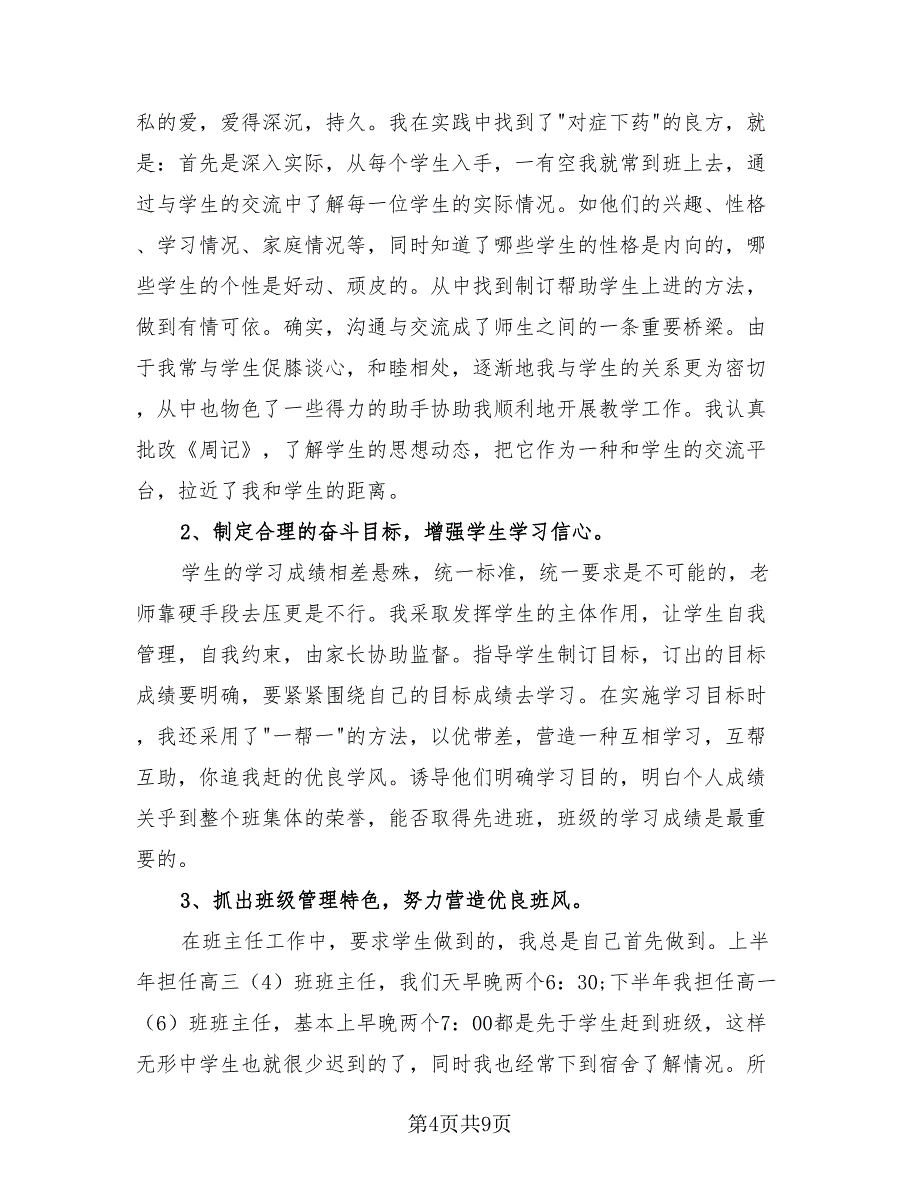 私的爱，爱得深沉，持久。我在实践中找到了"对症下药"的良方，就
是：首先是深入实际，从每个学生入手，一有空我就常到班上去，通
过与学生的交流中了解每一位学生的实际情况。如他们的兴趣、性格
、学习情况、家庭情况等，同时知道了哪些学生的性格是内向的，哪
些学生的个性是好动、顽皮的。从中找到制订帮助学生上进的方法，
做到有情可依。确实，沟通与交流成了师生之间的一条重要桥梁。由
于我常与学生促膝谈心，和睦相处，逐渐地我与学生的关系更为密切
，从中也物色了一些得力的助手协助我顺利地开展教学工作。我认真
批改《周记》，了解学生的思想动态，把它作为一种和学生的交流平
台，拉近了我和学生的距离。
2、制定合理的奋斗目标，增强学生学习信心。
学生的学习成绩相差悬殊，统一标准，统一要求是不可能的，老
师靠硬手段去压更是不行。我采取发挥学生的主体作用，让学生自我
管理，自我约束，由家长协助监督。指导学生制订目标，订出的目标
成绩要明确，要紧紧围绕自己的目标成绩去学习。在实施学习目标时
，我还采用了"一帮一"的方法，以优带差，营造一种互相学习，互帮
互助，你追我赶的优良学风。诱导他们明确学习目的，明白个人成绩
关乎到整个班集体的荣誉，能否取得先进班，班级的学习成绩是最重
要的。
3、抓出班级管理特色，努力营造优良班风。
在班主任工作中，要求学生做到的，我总是自己首先做到。上半
年担任高三（4）班班主任，我们天早晚两个6：30;下半年我担任高一
（6）班班主任，基本上早晚两个7：00都是先于学生赶到班级，这样
无形中学生也就很少迟到的了，同时我也经常下到宿舍了解情况。所
第4页共9页